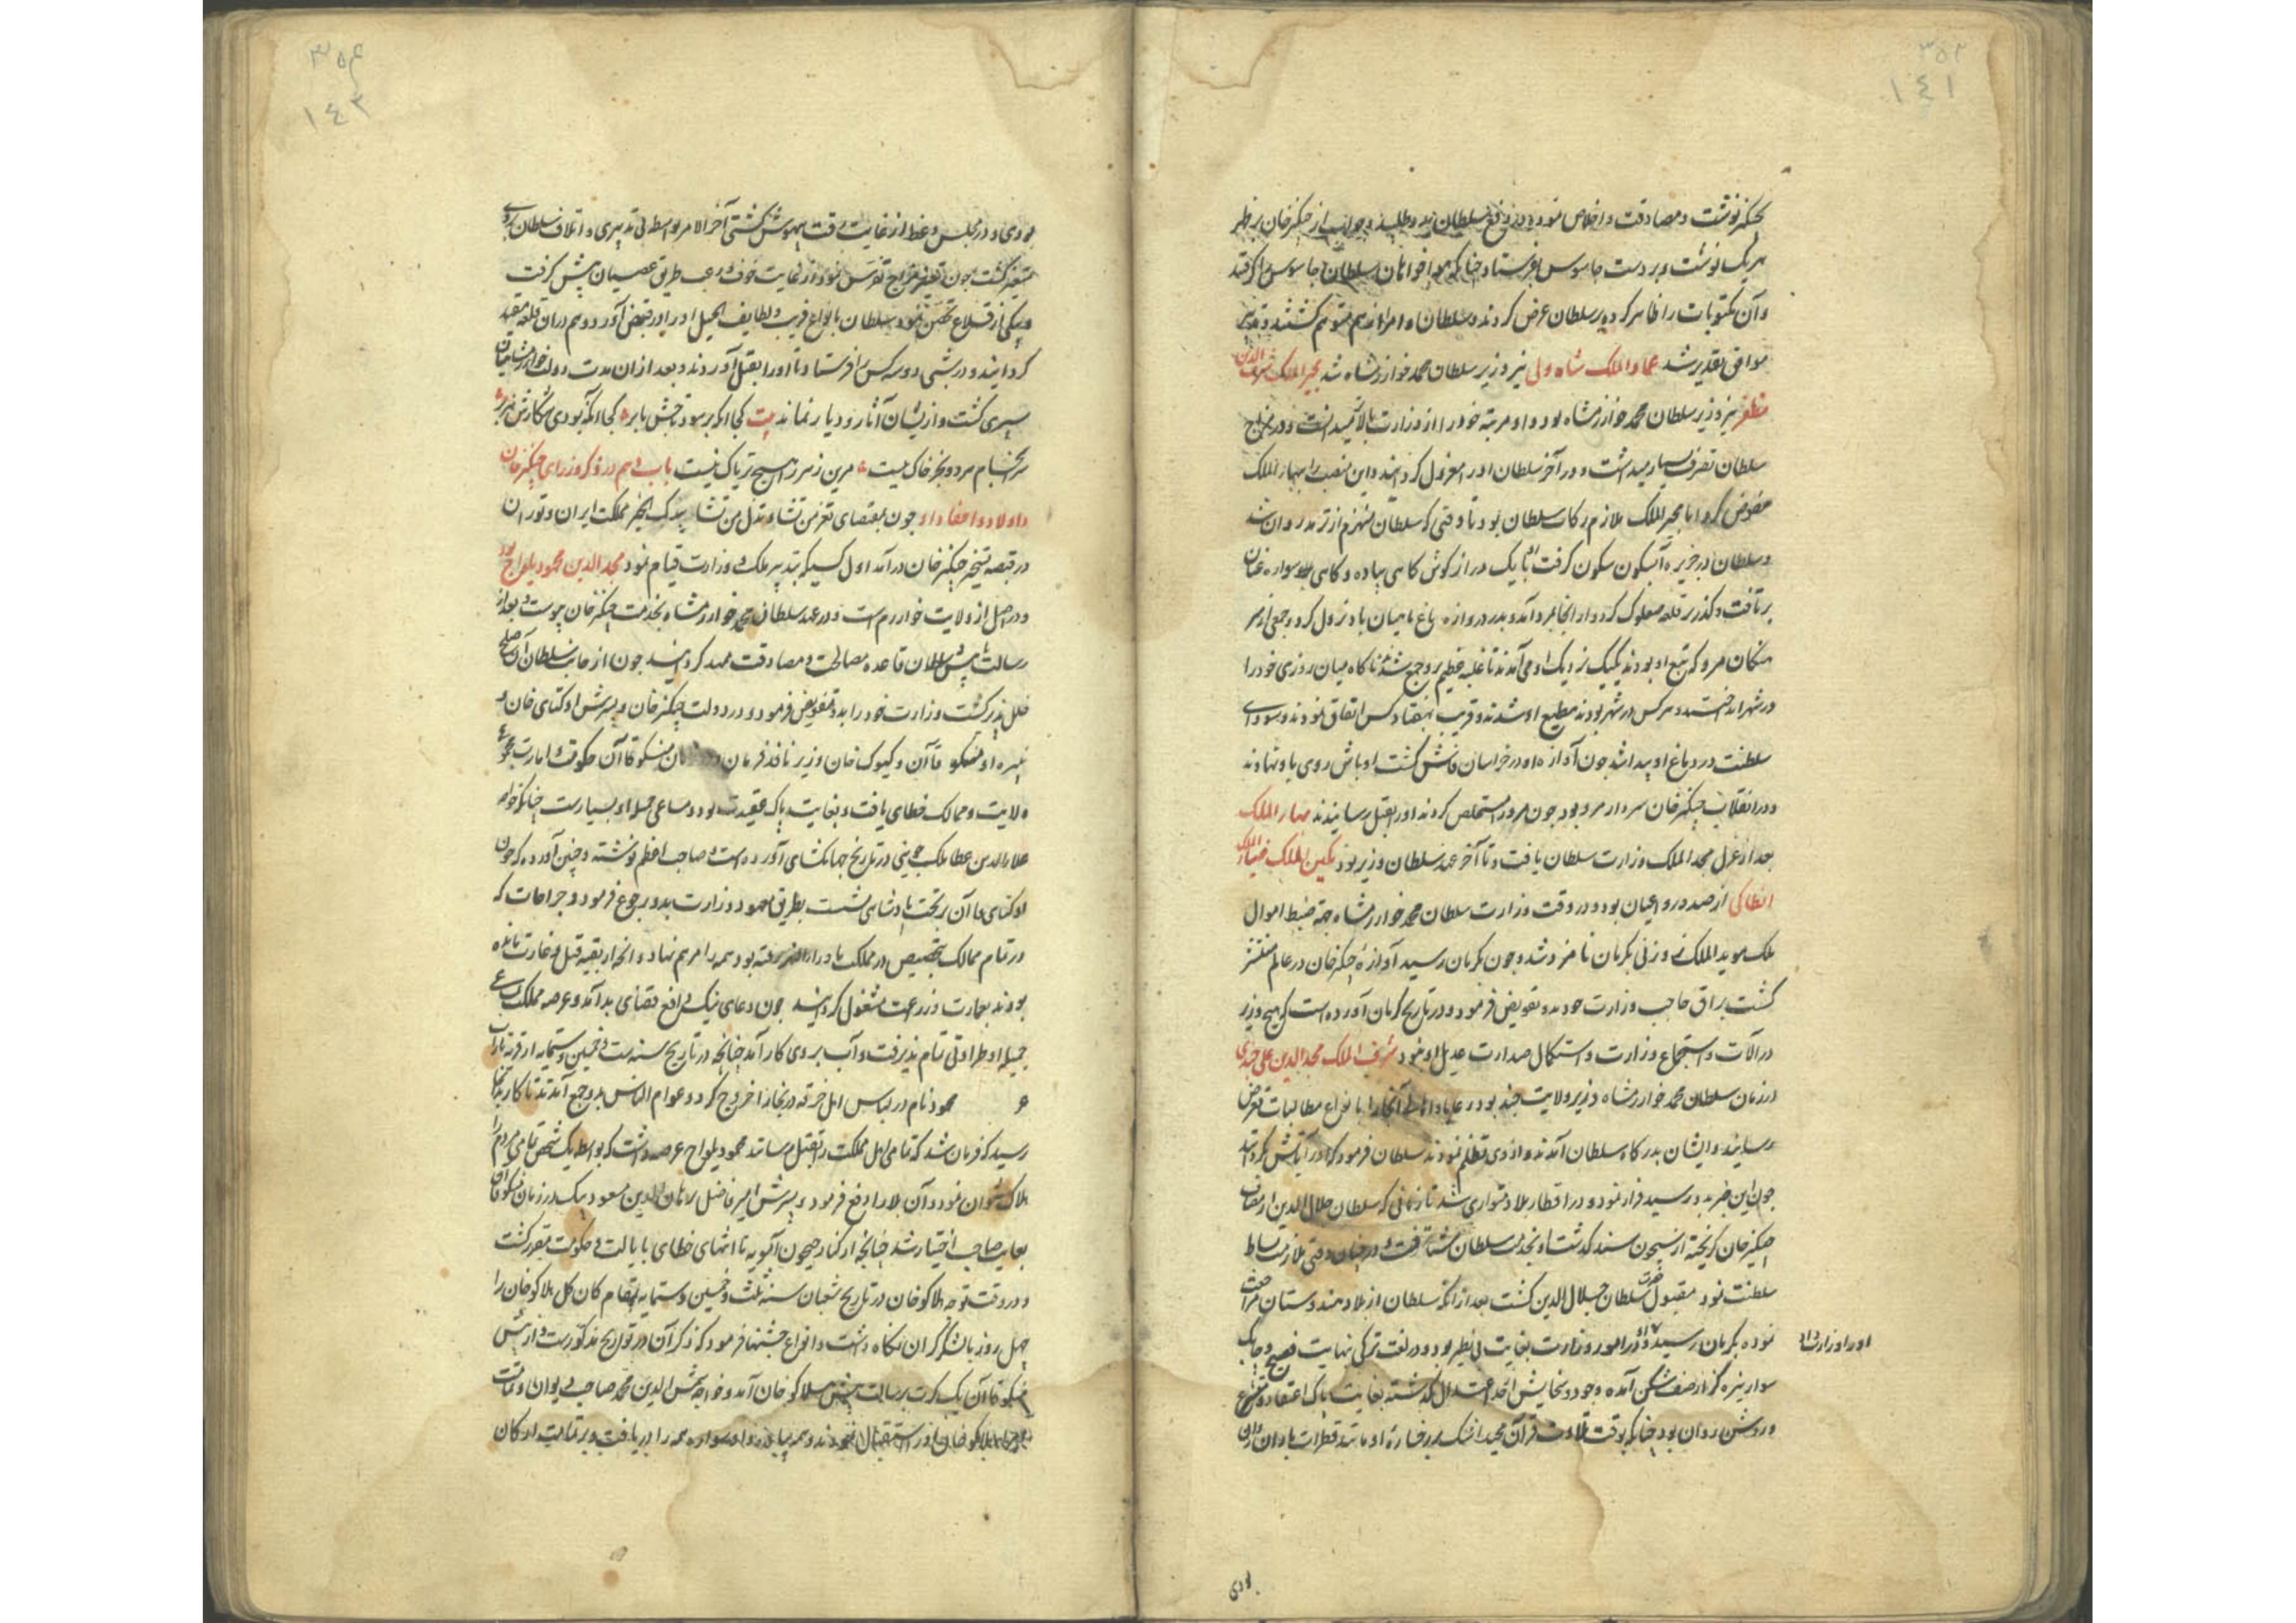 ۳۵۳
۱٤۱
بچنکیز نوشت و مصادقت و اخلاص نموده در دفع سلطان مدد طلبید و جواب از چنکیز خان بر ظهر
هر یک نوشت و بر دست جاسوس بفرستاد چنانکه سلطان جاسوس را کرفتند
و آن مکتوبات را ظاهر کرده بر سلطان عرض کردند و سلطان و امرا از هم متوهم کشتند و تدبیر
موافق تقدیر نشد عماد الملک شاه ولی نیز وزیر سلطان محمد خوارزمشاه شد مجیر الملک شرف الدین
مظفر نیز وزیر سلطان محمد خوارزمشاه بود و او مرتبه خود را از وزارت بالا میدانست و در مزاج
سلطان تصرف بسیار میداشت و در آخر سلطان او را معزول کردانید و این منصب را ببهار الملک
مفوض کرد اما مجیر الملک ملازم رکاب سلطان بود تا وقتی که سلطان منهزم از ترمذ روان شد
و سلطان در جزیره آبسکون سکون کرفت او با یک دراز کوش کاهی پیاده و کاهی سواره عنان
بر تافت و کذر بر قلعه صعلوک کرد و از انجا بمرو آمد و بدر دروازه باغ ماهیان باد نزول کرد و جمعی از مر
هنکان مرو که تبع او بودند یکیک نزدیک او می آمدند تا غلبه عظیم بر و جمع شد تا ناکاه میان روزی خود را
در شهر انداخت و هر کس در شهر بودند مطیع او شدند و قریب بهفتاد کس اتفاق نمودند و سودای
سلطنت در دماغ او پیدا شد چون آوازه او در خراسان فاش کشت اوباش روی باو نهادند
و در انقلاب چنکیز خان سردار مرو بود چون مرو مستخلص کردند او را بقتل رسانیدند بهار الملک
بعد از عزل مجد الملک وزارت سلطان یافت و تا آخر عهد سلطان وزیر بود نکین الملک ضیاء الملک
انطاکی از صدور و اعیان بود و در وقت وزارت سلطان محمد خوارزمشاه جهة ضبط اموال
ملک موید الملک زوزنی بکرمان نامزد شد و چون بکرمان رسید آوازه چنکیز خان در عالم منتشر
کشت براق حاجب وزارت خود بدو تفویض فرمود و در تاریخ کرمان آورده است که هیچ وزیر
در آلات و استجماع وزارت و استکمال صدارت عدیل او نبود شرف الملک مجد الدین علی جندی
در زمان سلطان محمد خوارزمشاه وزیر ولایت جند بود و رعایا و اهالی آنجا را بانواع مطالبات تعرض
رسانید و ایشان بدر کاه سلطان آمدند و از وی تظلم نمودند سلطان فرمود که او را آتش کردانند
چون این خبر بدو رسید فرار نمود و در اقطار بلاد متواری شد تا زمانی که سلطان جلال الدین از مصاف
چنکیز خان کریخته از سیحون سند کذشت او بخدمت سلطان شتافت و در چنان وقتی ملازمت بساط
سلطنت نمود مقبول حضرت سلطان جلال الدین کشت بعد از انکه سلطان از بلاد هندوستان مراجعت
نموده بکرمان رسید او را وزارت داد و در امور وزارت بغایت بی نظیر بود و در لغت ترکی نهایت فصیح و چابک
او را وزارت داد
سوار نیزه کذار صف شکن آمده وجود و سخایش از حد اعتدال کذشته بغایت پاک اعتقاد و متشرع
و روشن روان بود چنانکه بوقت تلاوت قرآن مجید اشک بر رخساره او مانند قطرات باران روان
بودی
۳۵۴
۱٤۲
بودی و در مجلس وعظ از غایت رقت بیهوش کشتی آخر الامر بواسطه بی تدبیری و اتلاف سلطان بروی
متغیر کشت چون تغییر مزاج تفرس نمود از غایت خوف و رعب طریق عصیان پیش کرفت
و بیکی از قلاع تحصن نمود سلطان بانواع فریب و لطایف الحیل او را در قبض آورد و هم در ان قلعه مقید
کردانید و در شبی دو سه کس را فرستاد تا او را بقتل آوردند و بعد از ان مدت دولت خوارزمشاهیان
سپری کشت و از ایشان آثار و دیار نماند بیت کجا آنکه بر سود تاجش بابر کجا آنکه بودی شکارش هزبر
سرانجام مرد بجز خاک نیست مر این زهر را هیچ تریاک نیست باب دهم در ذکر وزرای چنکیز خان
و اولاد و احفاد او چون بمقتضای تعز من تشاء و تذل من تشا بیدک الخیر مملکت ایران و توران
در قبضه تسخیر چنکیز خان در آمد اول کسیکه بتدبیر ملک و وزارت قیام نمود مجد الدین محمود یلواج بود
و در اصل از ولایت خوارزم است و در عهد سلطان محمد خوارزمشاه بخدمت چنکیز خان پیوست و بعد از
رسالت پیش سلطان قاعده مصالحت و مصادقت ممهد کردانید چون از جانب سلطان آن صلح
خلل پذیر کشت وزارت خود را بدو تفویض فرمود و در دولت چنکیز خان و پسرش اوکتای خان و
نبیره او منکو قاآن و کیوک خان وزیر نافذ فرمان منکو قاآن حکومت و امارت مجموع
ولایت و ممالک خطای یافت و بغایت پاک عقیدت بود و مساعی جمیله او بسیارست چنانکه خواجه
علاء الدین عطا ملک جوینی در تاریخ جهانکشای آورده است و صاحب اعظم نوشته و چنین آورده که چون
اوکتای قاآن بر تخت پادشاهی نشست بطریق معهود وزارت بدو رجوع فرمود و جراحات که
در تمام ممالک بتخصیص در مملکت ماوراء النهر رفته بود همه را مرهم نهاد و آنچه از بقیه قتل و غارت مانده
بودند بعمارت و زراعت مشغول کردانید چون دعای نیک دافع قضای بد آمد و عرصه مملکت بمساعی
جمیله او طراوتی تمام پذیرفت و آب بروی کار آمد چنانچه در تاریخ سنه ست و خمسین و ستمایه از قریه تاراب
محمود نام در لباس اهل خرقه در بخارا خروج کرد و عوام الناس بدو جمع آمدند تا کار بدانجا
رسید که فرمان شد که تمامی اهل مملکت را بقتل رسانند محمود یلواج عرصه داشت که بواسطه یک شخص تمامی مردم را
هلاک نتوان نمود و آن بلا را دفع فرمود و پسرش امیر فاضل برهان الدین مسعود بیک در زمان منکو قاآن
بغایت صاحب اختیار شد چنانچه از کنار جیحون آمویه تا انتهای خطای بایالت و حکومت مقرر کشت
و در وقت توجه هلاکو خان در تاریخ شعبان سنه ثلث و خمسین و ستمایه بمقام کان کل هلاکو خان را
چهل روز بالشکر کران نکاه داشت و انواع جشنها فرمود که ذکر آن در تواریخ مذکورست و از پیش
منکو قاآن یک کرت برسالت پیش هلاکو خان آمد و خواجه شمس الدین محمد صاحب دیوان و تمامت
هلاکو خان او را استقبال نمودند و همه پیاده و او سواره همه را دریافت و بر تمامت ارکان